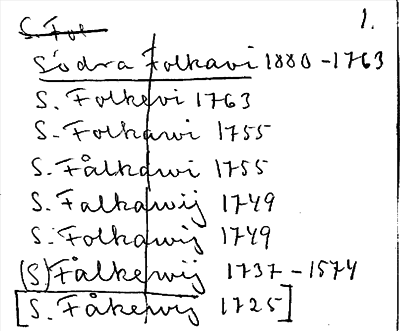 S. Fol 1.
Södra Folkavi 1880-1763
S. Folkevi 1763
S. Folkawi 1755
S. Fålkawi 1755
S. Falkawij 1749
S. Folkawij 1749
(S) Fålkewij 1737-1574
[S. Fåkewij 1725]